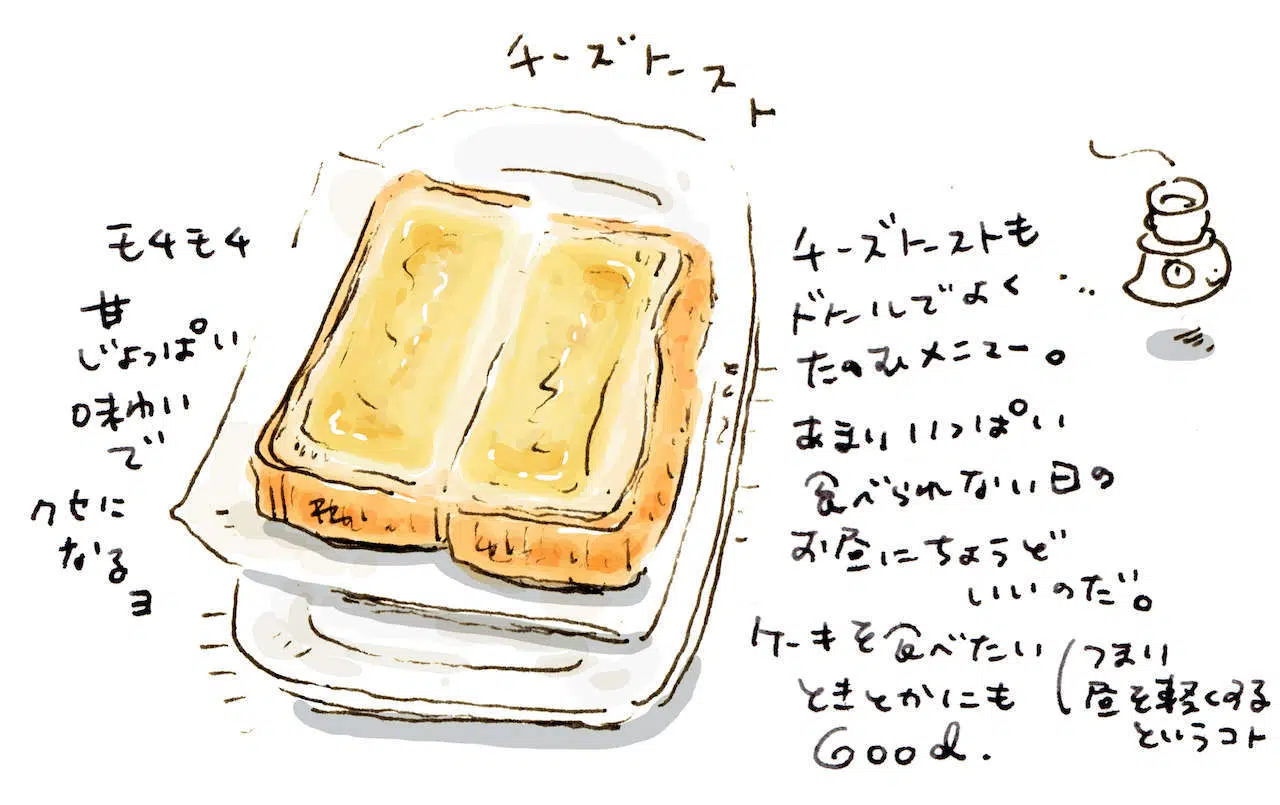 チーズトースト
モチモチ
甘
じょっぱい
味わい
で
クセに
なる
ヨ
チーズトーストも
ドトールでよく
たのむメニュー。
あまりいっぱい
食べられない日の
お昼にちょうど
いいのだ。
ケーキを食べたい
ときとかにも
Good.
(つまり
昼を軽くする
というコト